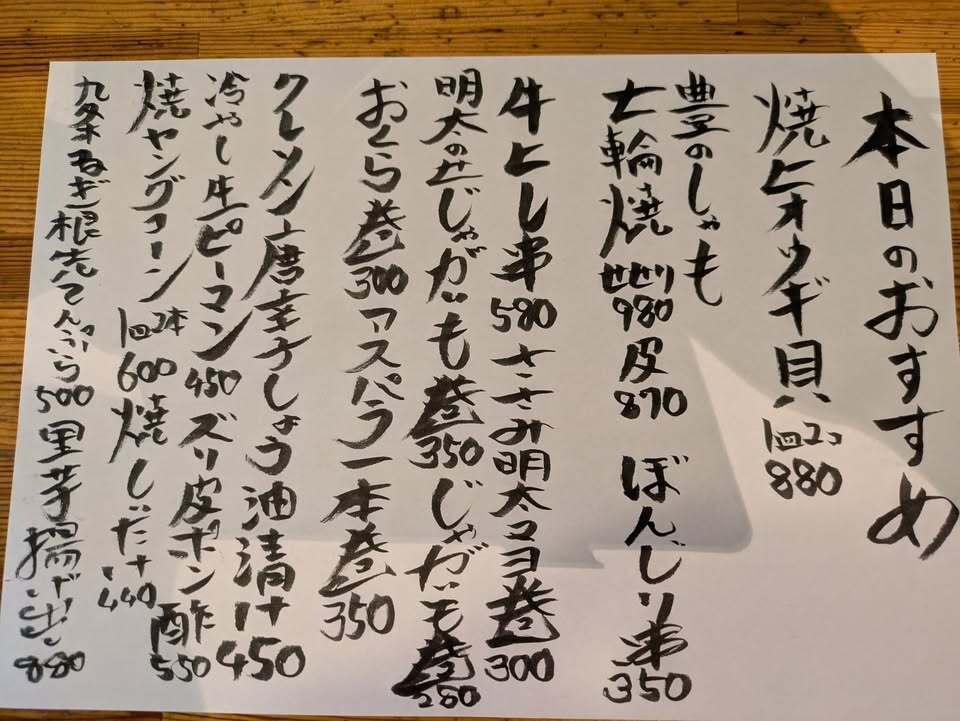 本日のおすすめ
焼ヒオウギ貝 1皿2コ 880
豊のしゃも
七輪焼 せせり 980 皮 870 ぼんじり串 350
牛とし串 580 ささみ明太マヨ巻 300
明太のせじゃがいも巻 350 じゃがいも巻 280
おくら巻 300 アスパラ一本巻 350
クレメン唐辛子しょう油漬け 450
冷やし生ピーマン 450 ズリ皮ポン酢 550
焼ヤングコーン 1皿2本 600 焼しいたけ 440
九条ねぎ根先てんぷら 500 里芋揚げ出し 880